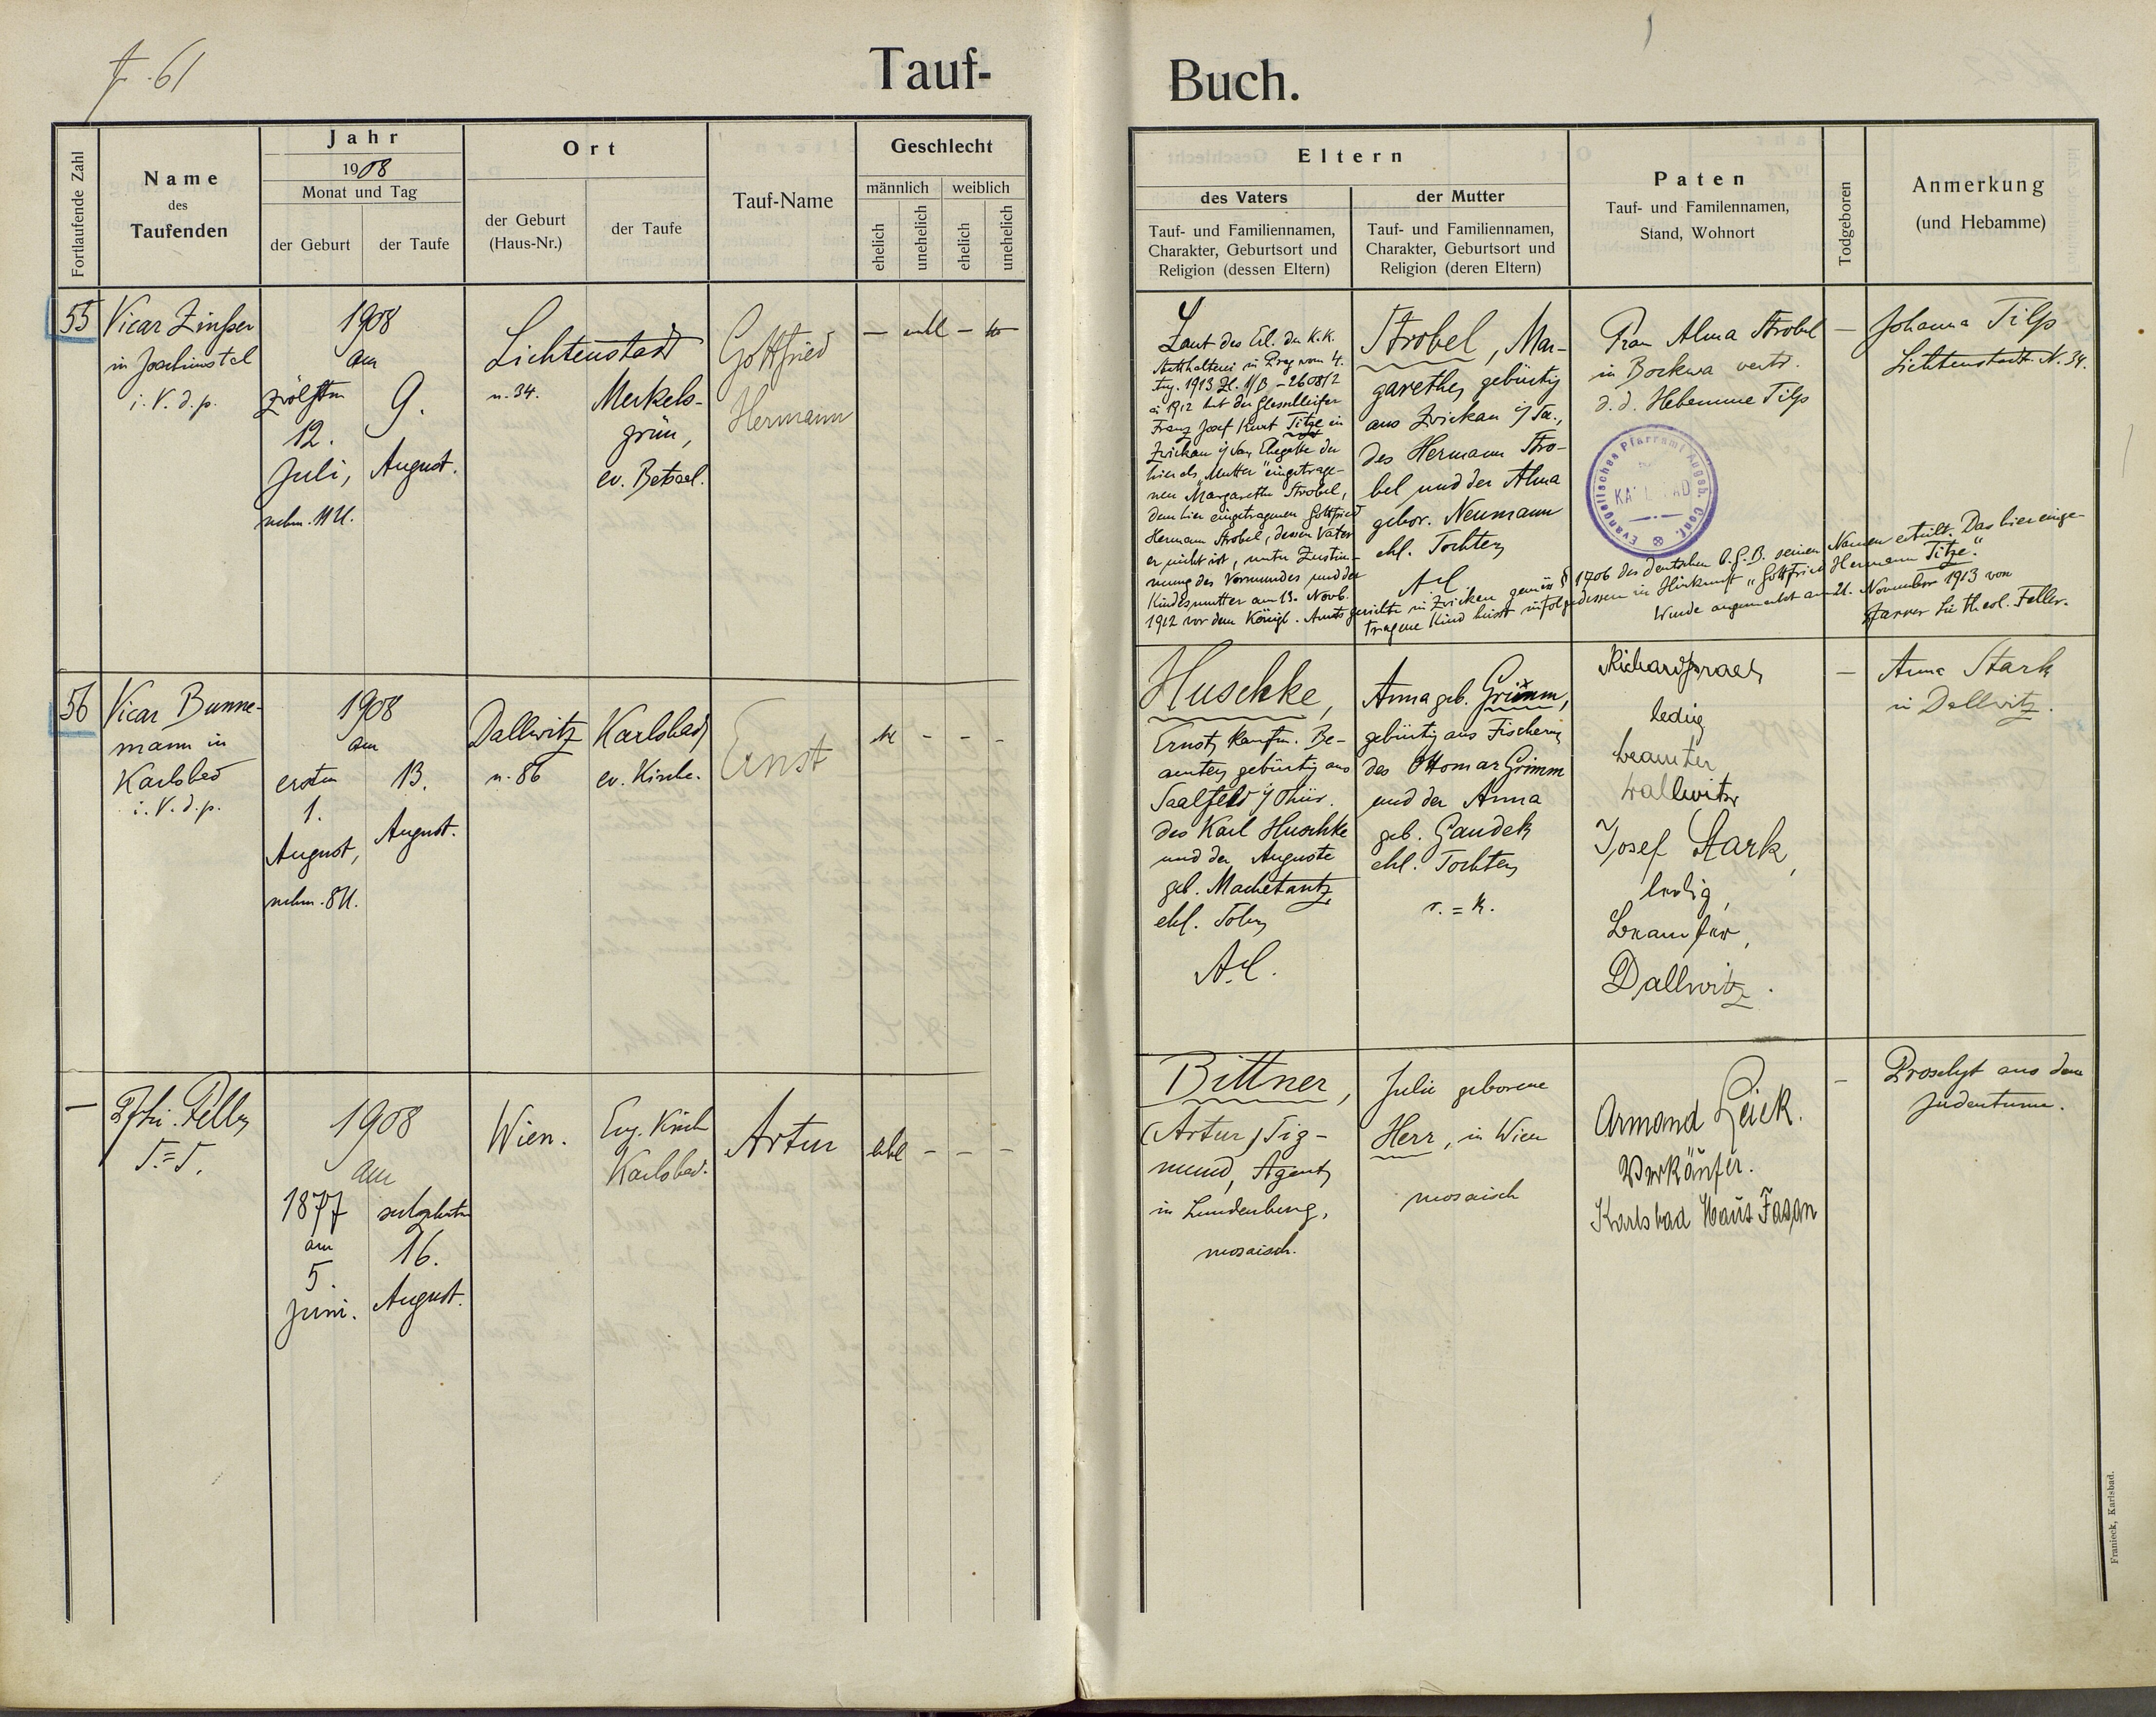 f. 61
Tauf-
Buch.
Fortlaufende Zahl
Name
des
Taufenden
Jahr
1908
Monat und Tag
der Geburt
der Taufe
Ort
der Geburt
(Haus-Nr.)
der Taufe
Tauf-Name
Geschlecht
männlich
weiblich
ehelich
unehelich
ehelich
unehelich
Eltern
des Vaters
Tauf- und Familiennamen,
Charakter, Geburtsort und
Religion (dessen Eltern)
der Mutter
Tauf- und Familiennamen,
Charakter, Geburtsort und
Religion (deren Eltern)
Paten
Tauf- und Familennamen,
Stand, Wohnort
Todgeboren
Anmerkung
(und Hebamme)
55
Vicar Zinßer
in Joachimstal
i. V. d. p.
1908
am
zwölften
12.
Juli,
nchm. 11 U.
9.
August.
Lichtenstadt
n. 34.
Merkels-
grün,
ev. Betsaal.
Gottfried
Hermann
— —
Laut des Erl. der K.K.
Statthalterei in Prag vom 4.
1913 Zl. 11/B - 26081/2
a 1912 hat der Glasschleifer
Franz Josef Kurt Titze in
Zwickau i/Sa, Ehegatte der
hier als "Mutter" eingetrage-
nen Margarethe Strobel,
dem hier eingetragenen Gottfried
Hermann Strobel, dessen Vater
er nicht ist, unter Zustim-
mung des Vormundes und der
Kindesmutter am 13. Novb.
1912 vor dem Königl. Amtsgerichte in Zwickau gemäss § 1706 des deutschen B.G.B. seinen Namen erteilt. Das hier einge-
tragene Kind heisst infolgedessen in Hinkunft "Gottfried Hermann Titze."
Wurde angemerkt am 21. November 1913 von
Pfarrer Lic theol. Feller.
Strobel, Mar-
garethe, gebürtig
aus Zwickau i/Sa.,
des Hermann Stro-
bel und der Alma
gebor. Neumann
ehl. Tochter,
A.C.
Frau Alma Strobel
in Bockwa vertr.
d. d. Hebamme Tilp
Evangelisches Pfarramt Augsb. Conf.
KARLSBAD
—
Johanna Tilp
Lichtenstadt N. 34.
56
Vicar Bunne-
mann in
Karlsbad
i. V. d. p.
1908
am
ersten
1.
August,
nchm. 8 U.
13.
August.
Dallwitz
n. 86
Karlsbad
ev. Kirche.
Ernst
- - -
Huschke,
Ernst, kaufm. Be-
amter, gebürtig aus
Saalfeld i/Thür.
des Karl Huschke
und der Auguste
geb. Machetantz
ehl. Sohn
A.C.
Anna geb. Grimm,
gebürtig aus Fischern
des Ottomar Grimm
und der Anna
geb. Gaudek
ehl. Tochter,
r. = k.
Richard Israel,
ledig
beamter
Dallwitz
Josef Stark,
ledig,
Beamter,
Dallwitz.
—
Anna Stark
in Dallwitz.
—
Pfr. Feller
1908
am
1877
am
5.
Juni.
sechzehnten
16.
August.
Wien.
Evg. Kirch
Karlsbad.
Artur
ehel - - -
Bittner,
(Artur) Sig-
mund, Agent,
in Lundenburg,
mosaisch.
Julie geborene
Herr, in Wien
mosaisch
Armand Leick.
Verkäufer.
Karlsbad Haus Fasan
-
Proselyt aus dem
Judentume.
Franieck, Karlsbad.